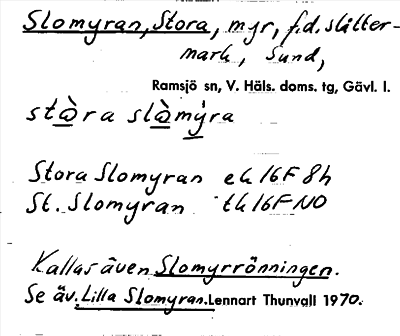 Slomyran, Stora, myr, f.d. slåtter-
mark, Sund,
Ramsjö sn, V. Häls. doms. tg, Gävl. l.
stàra slàmýra
Stora Slomyran ek 16F 8h
St. Slomyran tk 16F NO
Kallas även Slomyrrönningen.
Se äv. Lilla Slomyran. Lennart Thunvall 1970.